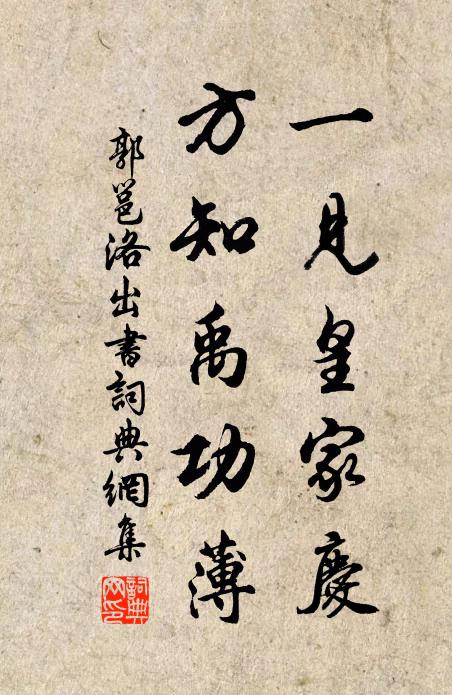 一見皇家慶
方知禹功薄
郭邕洛出書詞典網集
詞典網印